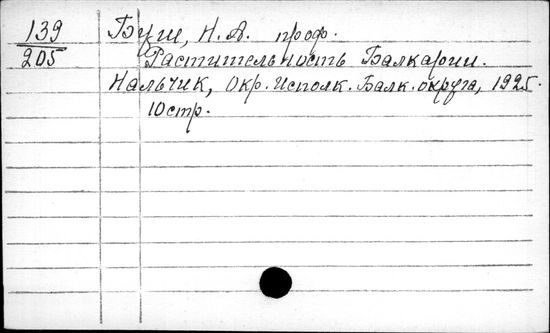 139
205
Буш, Н. А. проф.
Растительность Балкарии.
Нальчик, Окр. Исполк. Балк. округа, 1925.
10 стр.